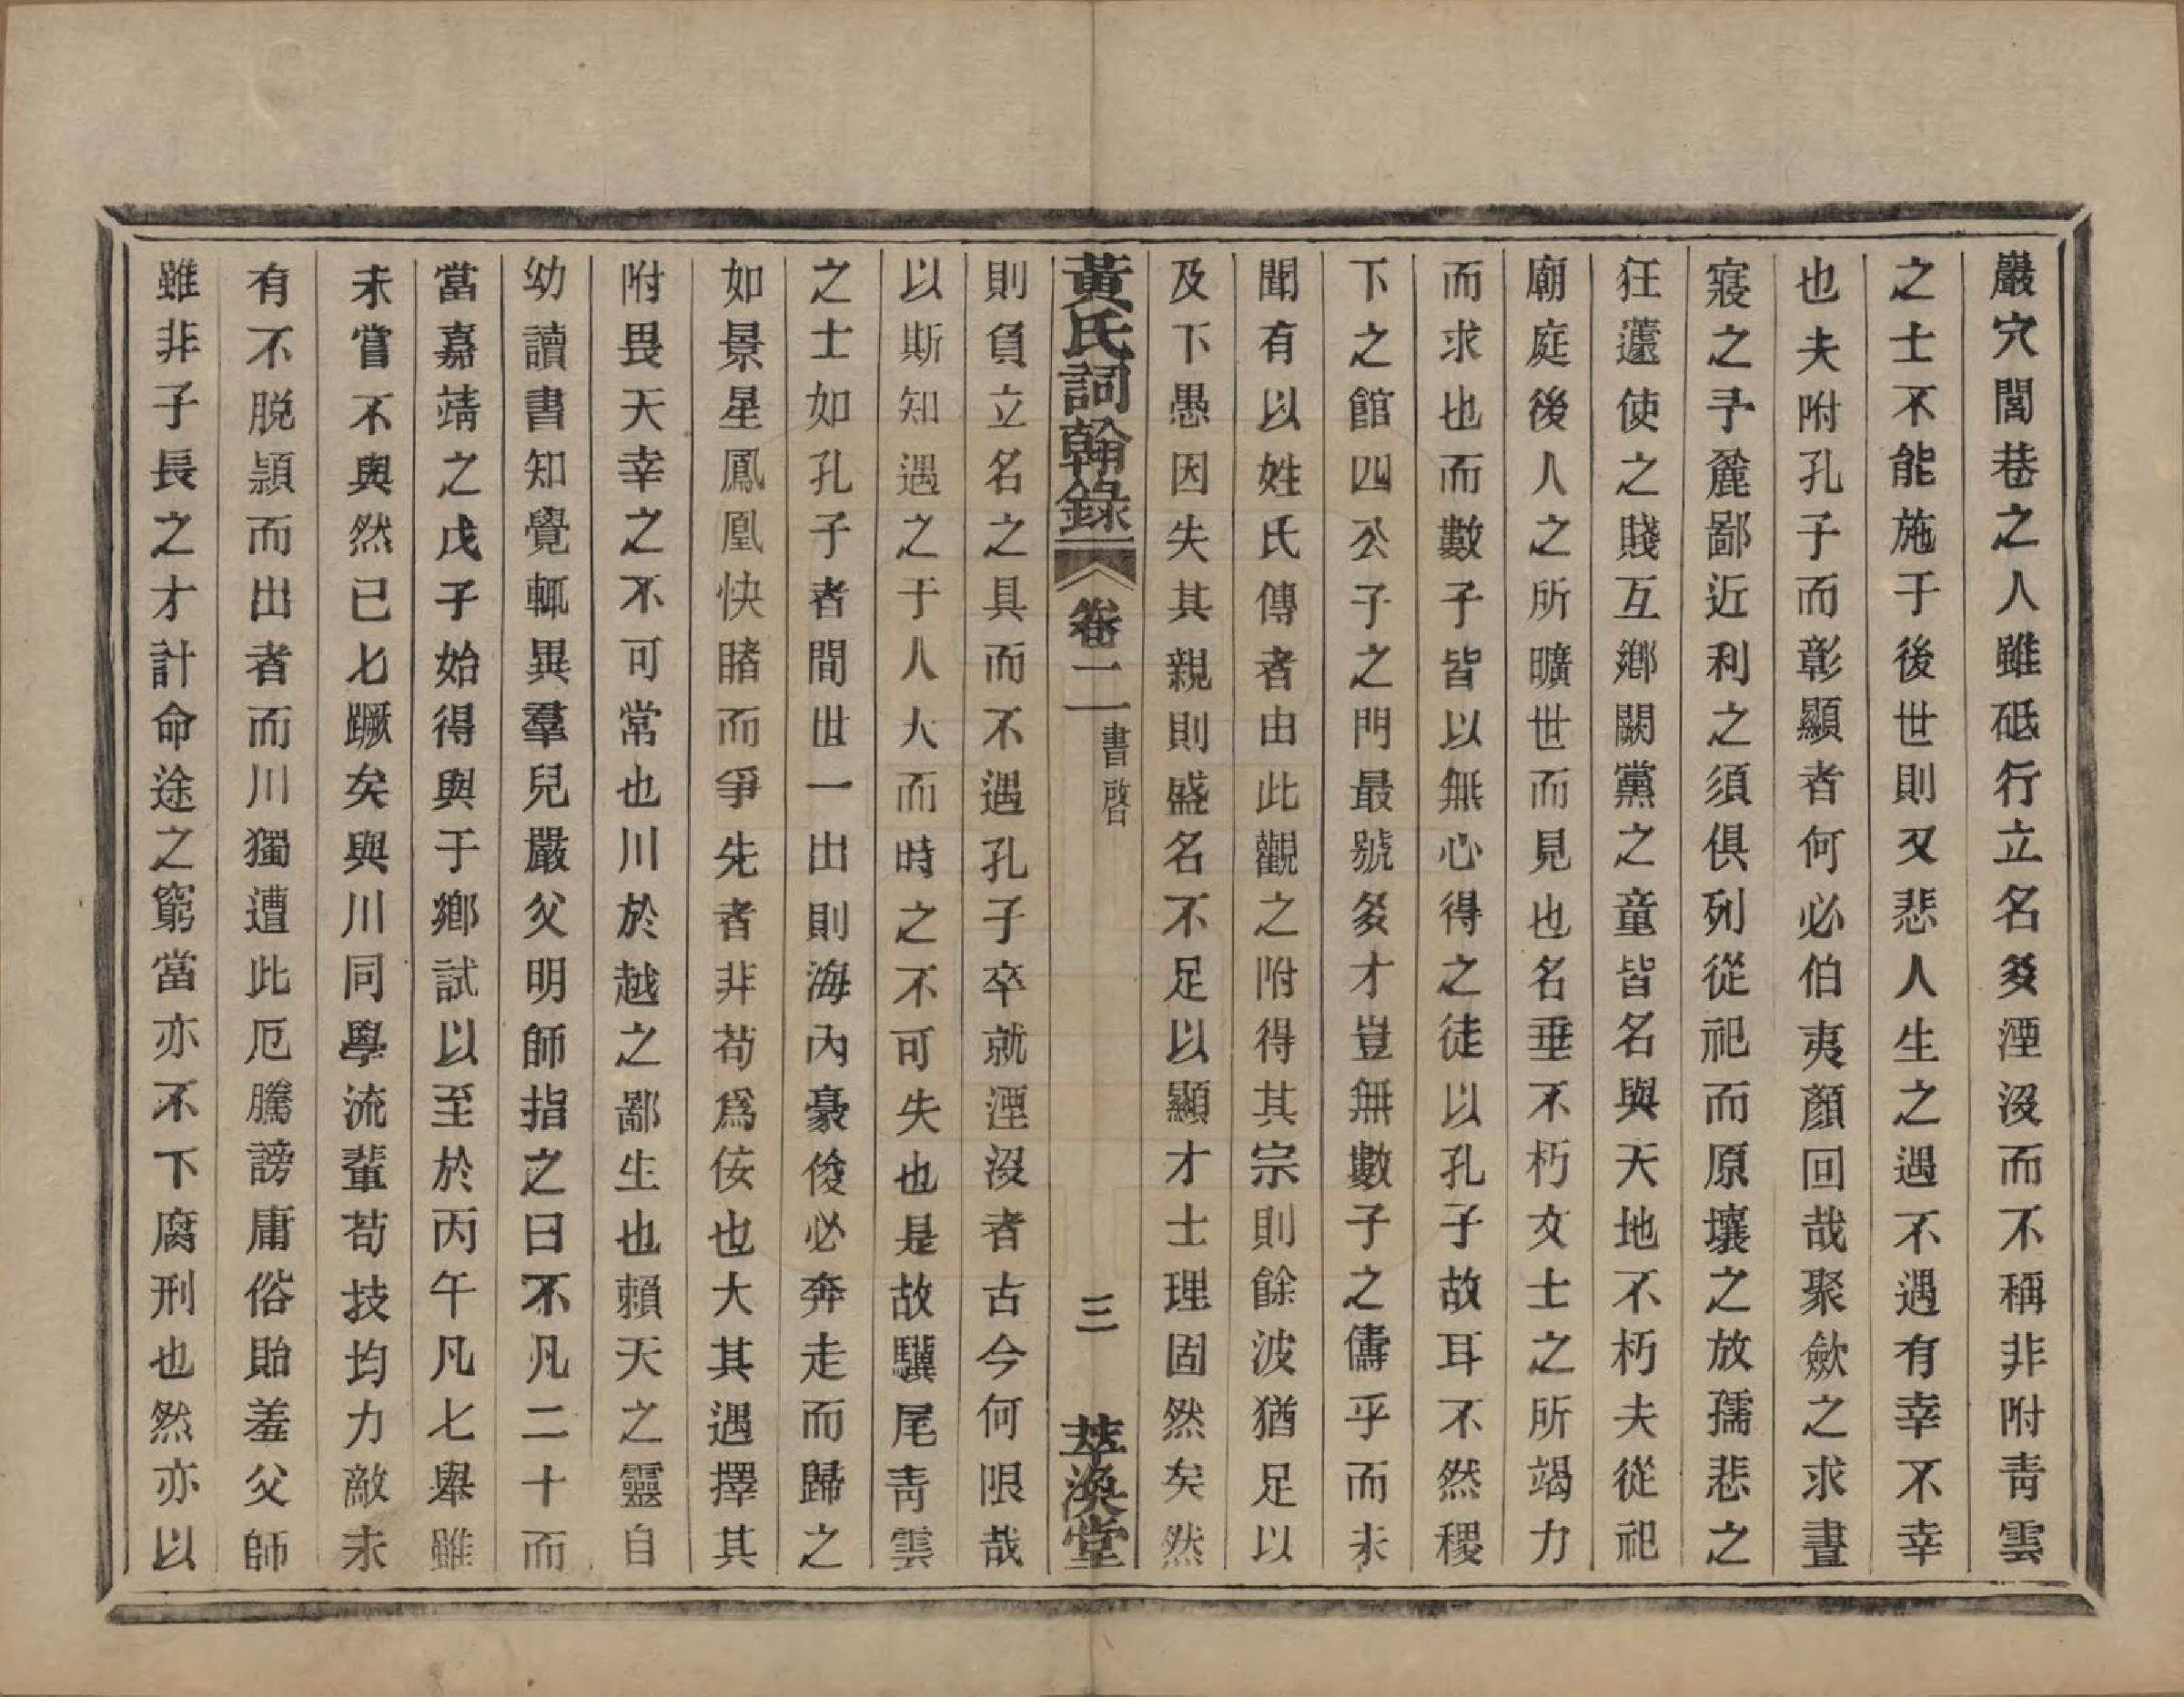 巖穴閭巷之人雖砥行立名多湮沒而不稱非附青雲
之士不能施于後世則又悲人生之遇不遇有幸不幸
也夫附孔子而彰顯者何必伯夷顏回哉聚歛之求晝
寢之予麄鄙近利之須俱列從祀而原壤之放孺悲之
狂蘧使之賤互鄉闕黨之童皆名與天地不朽夫從祀
廟庭後人之所曠世而見也名垂不朽文士之所竭力
而求也而數子皆以無心得之徒以孔子故耳不然稷
下之館四公子之門最號多才豈無數子之儔乎而未
聞有以姓氏傳者由此觀之附得其宗則餘波猶足以
及下愚因失其親則盛名不足以顯才士理固然矣然
黃氏詞翰錄 卷二 書啓 三 萃渙堂
則負立名之具而不遇孔子卒就湮沒者古今何限哉
以斯知遇之于人大而時之不可失也是故驥尾青雲
之士如孔子者間世一出則海內豪俊必奔走而歸之
如景星鳳凰快睹而爭先者非苟爲佞也大其遇擇其
附畏天幸之不可常也川於越之鄙生也賴天之靈自
幼讀書知覺輒異羣兒嚴父明師指之曰不凡二十而
當嘉靖之戊子始得與于鄉試以至於丙午凡七舉雖
未嘗不與然已七蹶矣與川同學流輩苟技均力敵未
有不脱潁而出者而川獨遭此厄騰謗庸俗貽羞父師
雖非子長之才計命途之窮當亦不下腐刑也然亦以